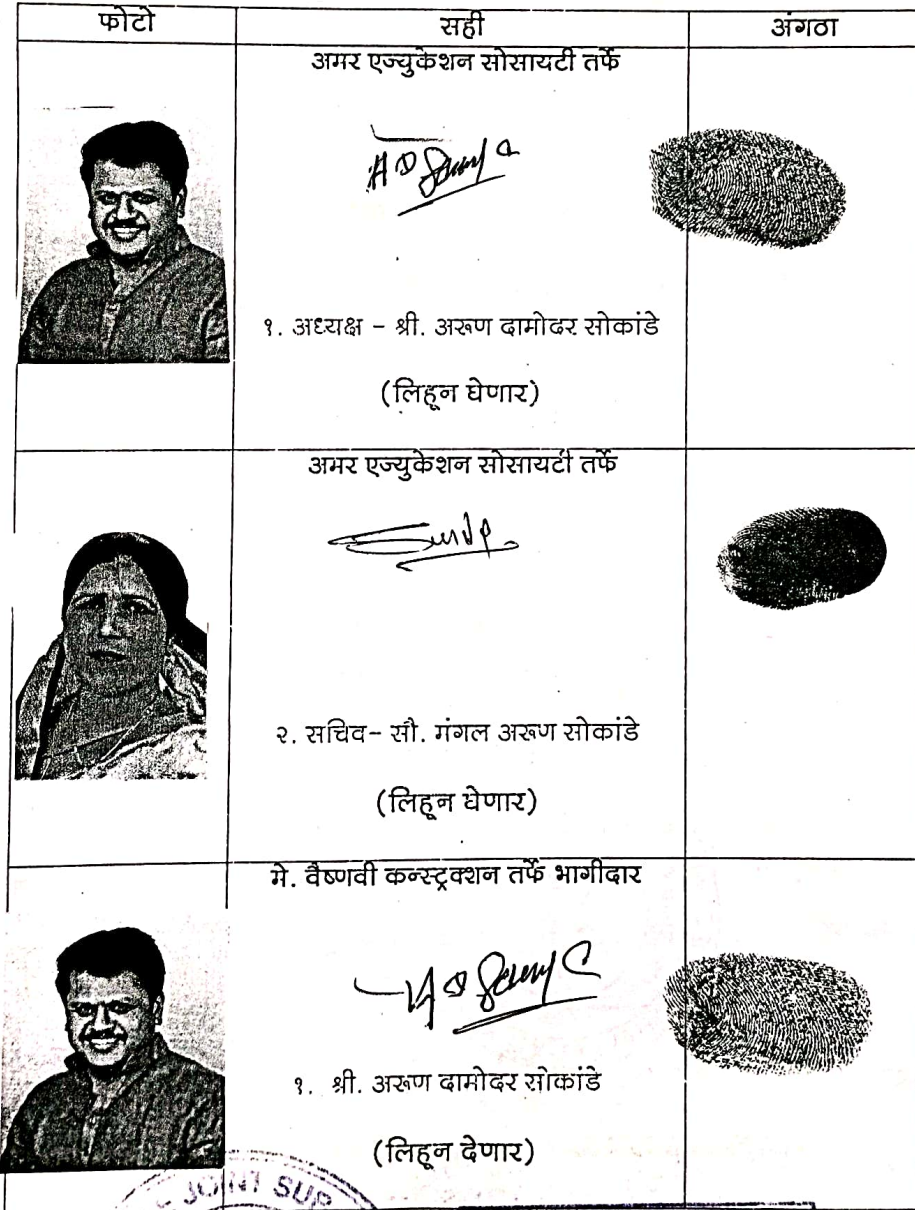 फोटो सही अंगठा
अमर एज्युकेशन सोसायटी तर्फे
१. अध्यक्ष - श्री. अरूण दामोदर सोकांडे
(लिहून घेणार)
अमर एज्युकेशन सोसायटी तर्फे
२. सचिव- सौ. मंगल अरूण सोकांडे
(लिहून घेणार)
मे. वैष्णवी कन्स्ट्रक्शन तर्फे भागीदार
१. श्री. अरूण दामोदर सोकांडे
(लिहून देणार)
JOINT SUB